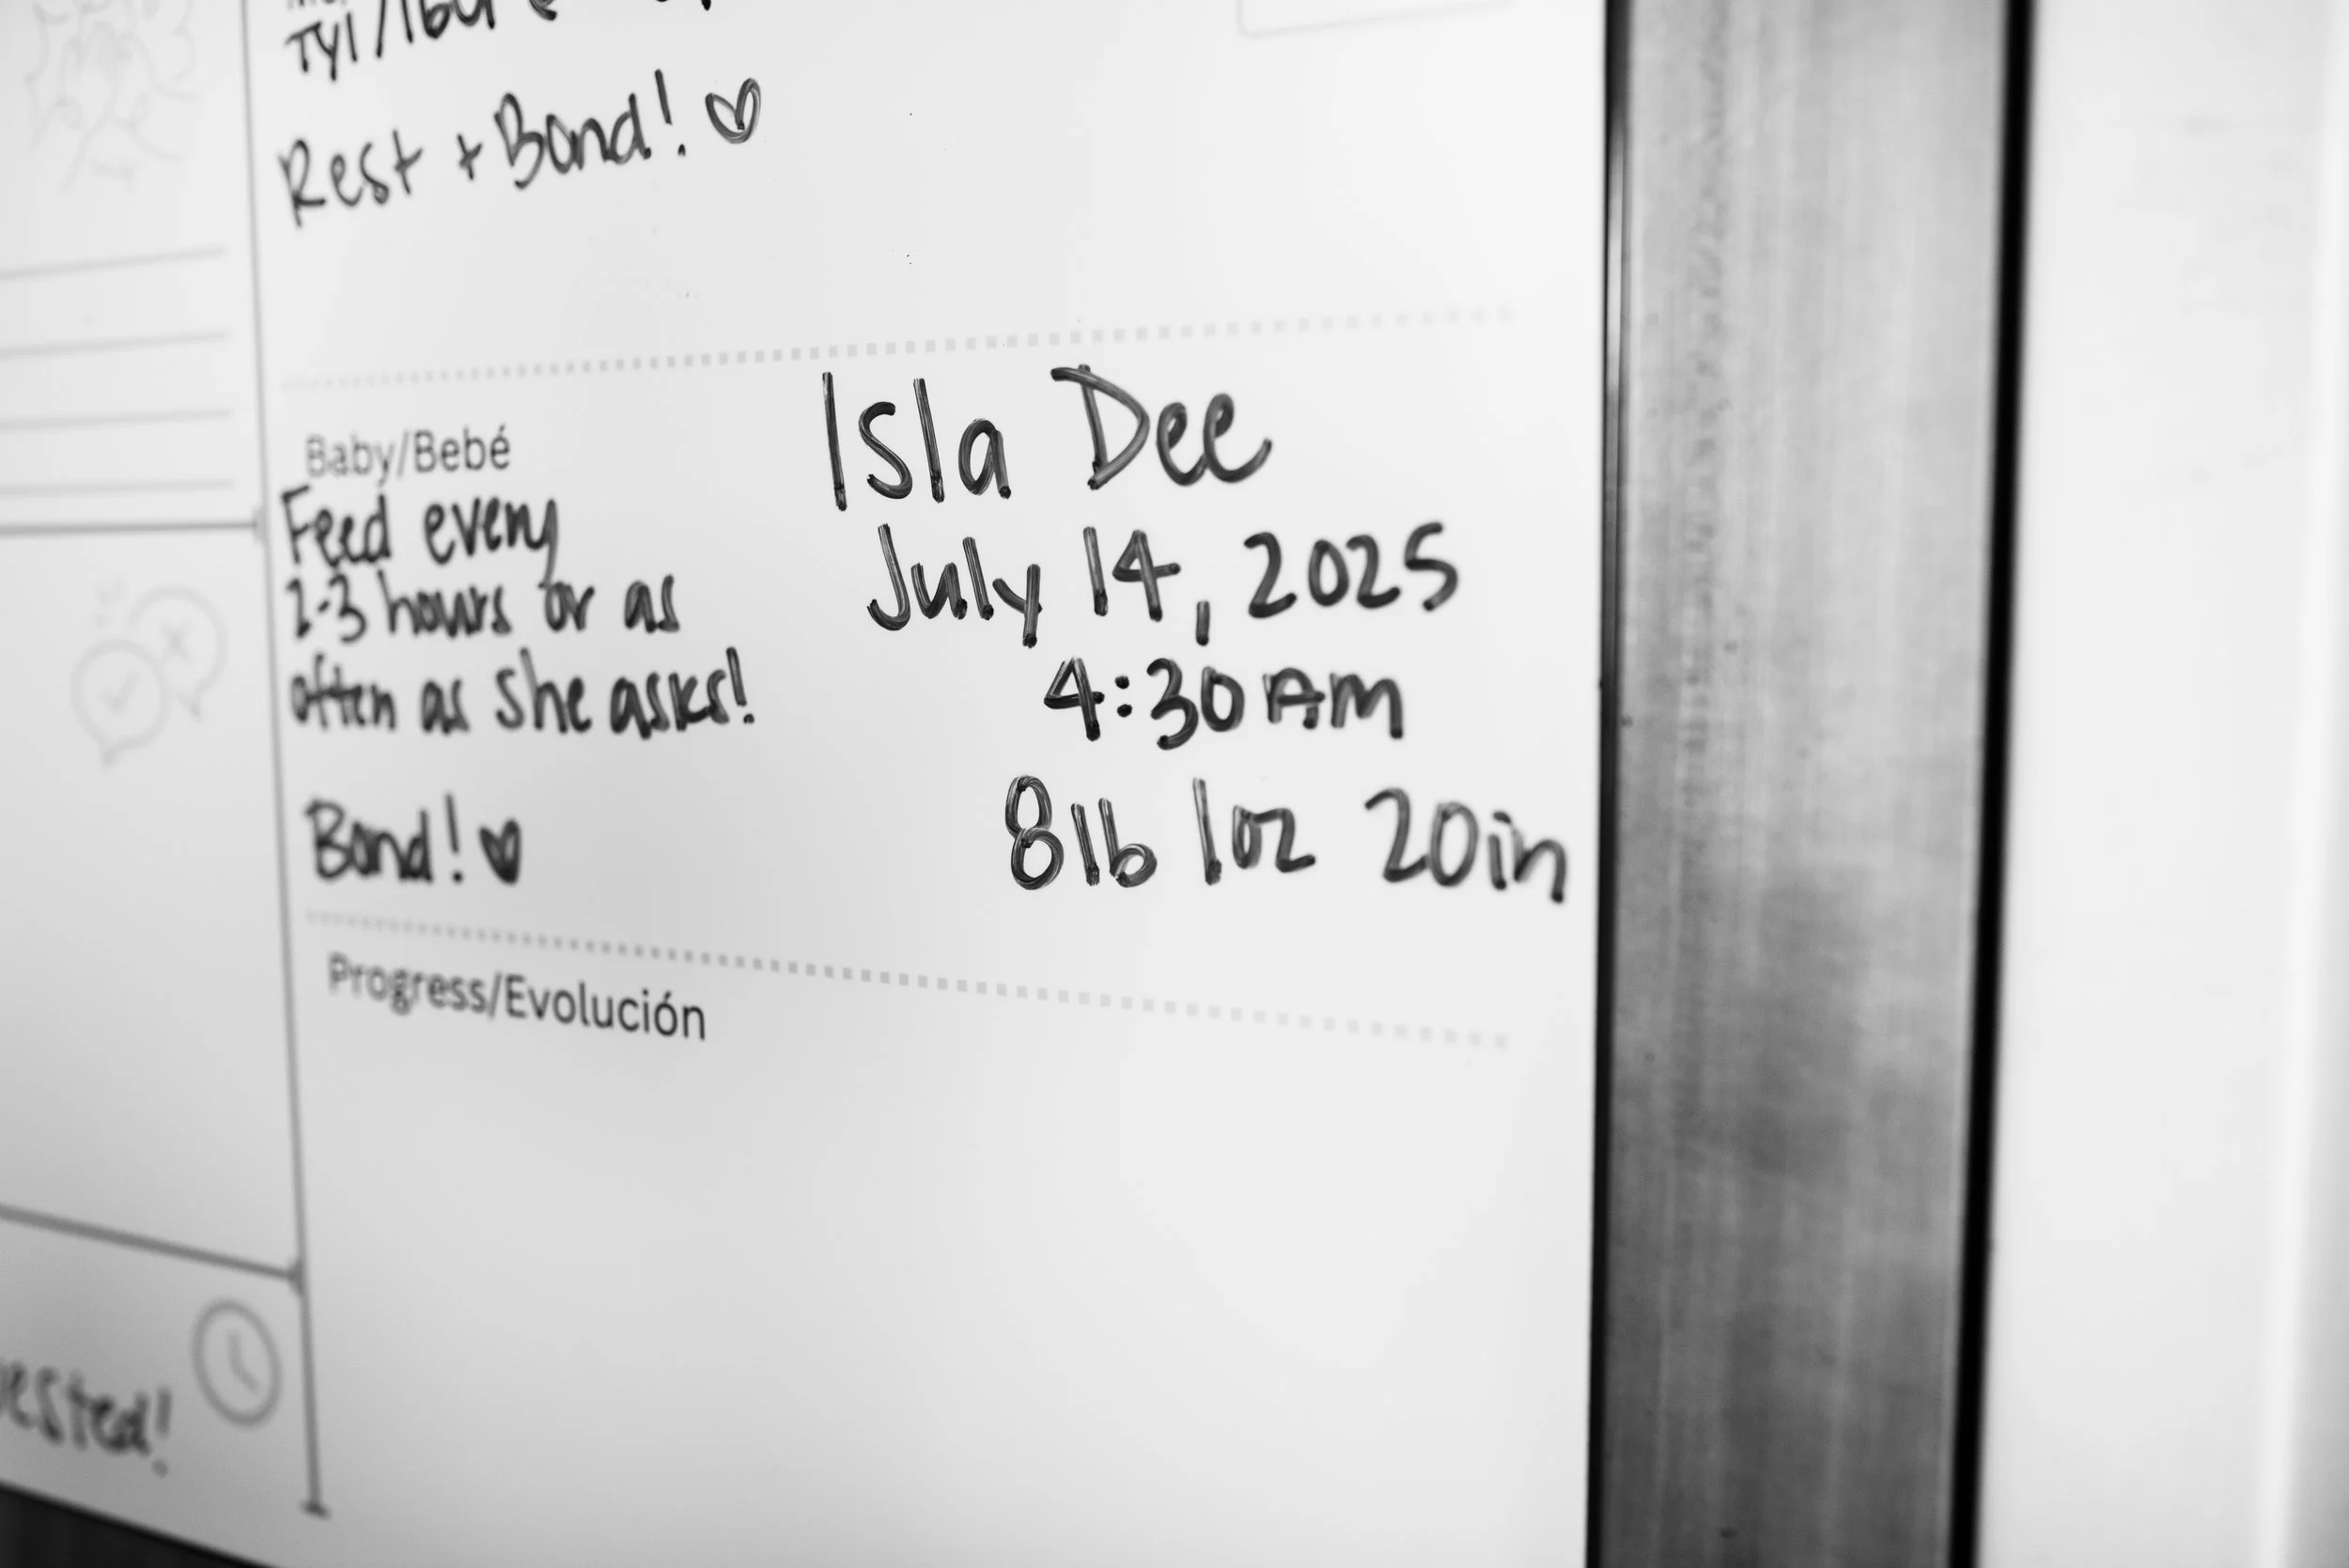 Tyl/Ibu
Rest + Bond! ♡
Baby/Bebé
Feed every
2-3 hours or as
often as she asks!
Bond! ♥
Isla Dee
July 14, 2025
4:30 AM
8lb 1oz 20in
Progress/Evolución